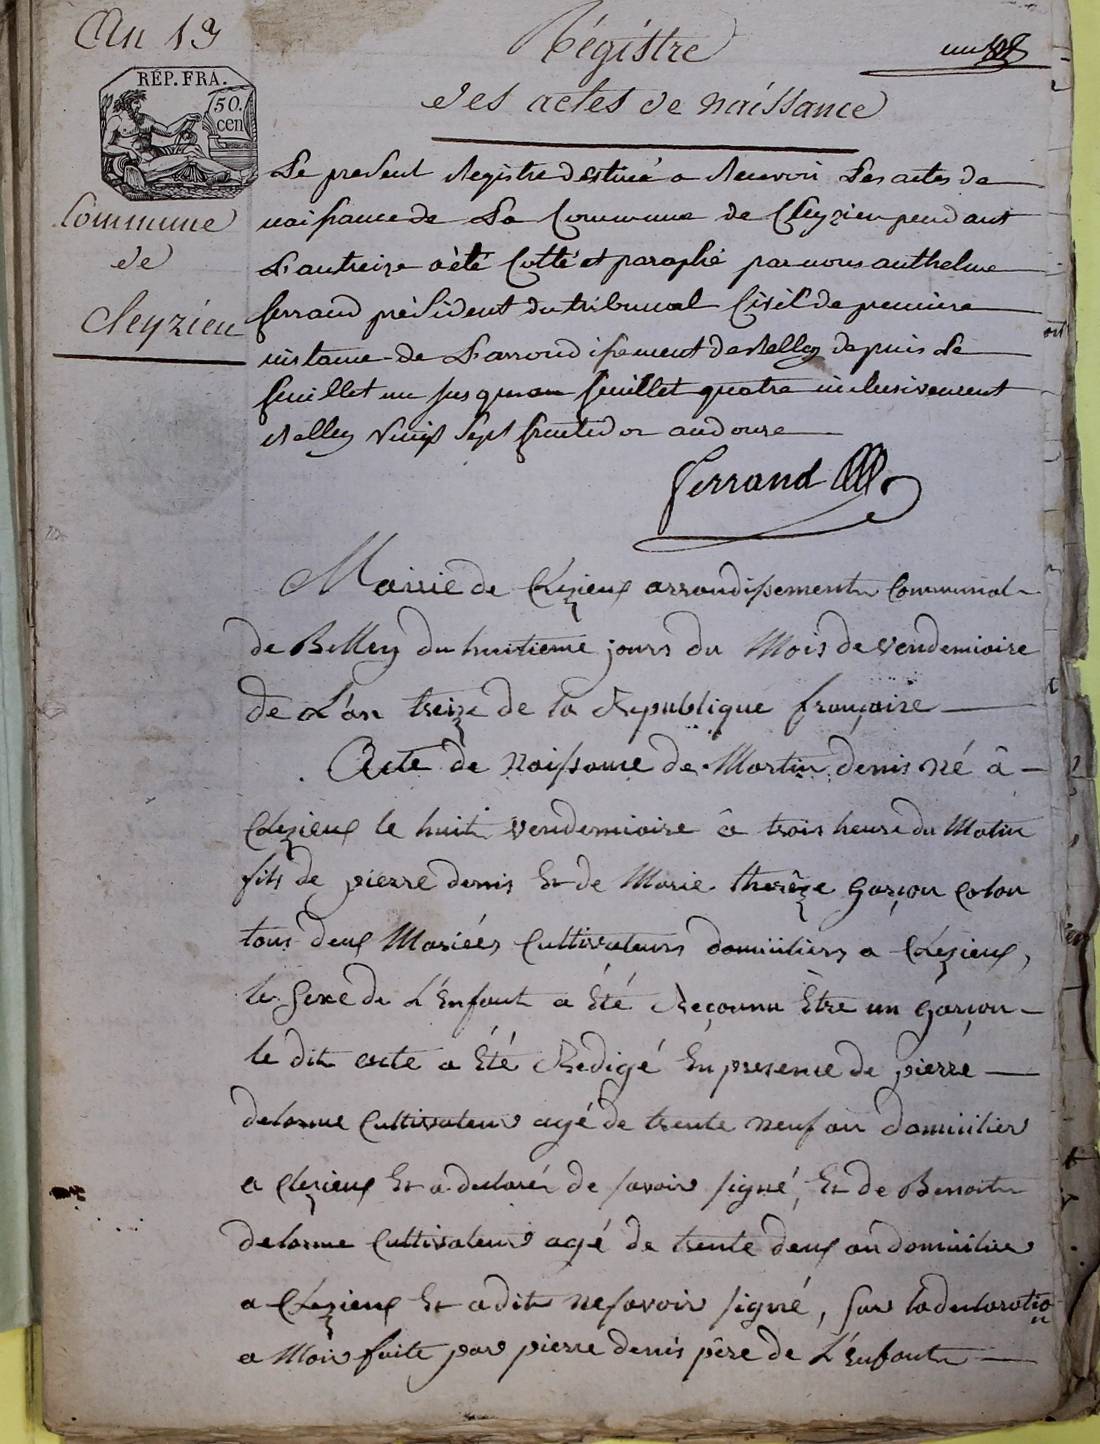 An 13
Régistre
un
RÉP. FRA.
50.
cen
des actes de náissance
Commune
de
Cleyzieu
Le present Registre destiné a Recevoir Les actes de
naissance de La Commune de Cleyzieu pendant
L'an treize a été Cotté et paraphé par nous anthelme
ferrand président du tribunal Civil de premiere
instance de L'arrondissement de Belley depuis Le
feuillet un jusqu'au feuillet quatre inclusivement
Belley Vingt Sept fructidor an douze
Ferrand
Mairie de Clezieux arrondissement Communal
de Belley du huitieme jours du Mois de vendemiaire
de L'an treize de la Republique françaire
Acte de naissance de Martin denis né â
Clezieux le huit vendemiaire â trois heure du Matin
fils de pierre denis Et de Marie therêze garçon Colon
tous deux Mariées Cultivateurs domiciliers a Clezieux,
le Sexe de L'Enfant a Été Reçonnu Être un garçon
le dit acte a Été Redigé En presence de pierre
delorme Cultivateur agé de trente neuf an domicilier
a Clezieux Et a declarér de savoir signé, Et de Benoit
delorme Cultivateur agé de trente deux an domicilier
a Clezieux Et a dit ne savoir signé, sur la declaration
a Moi faite par pierre denis pêre de L'Enfant